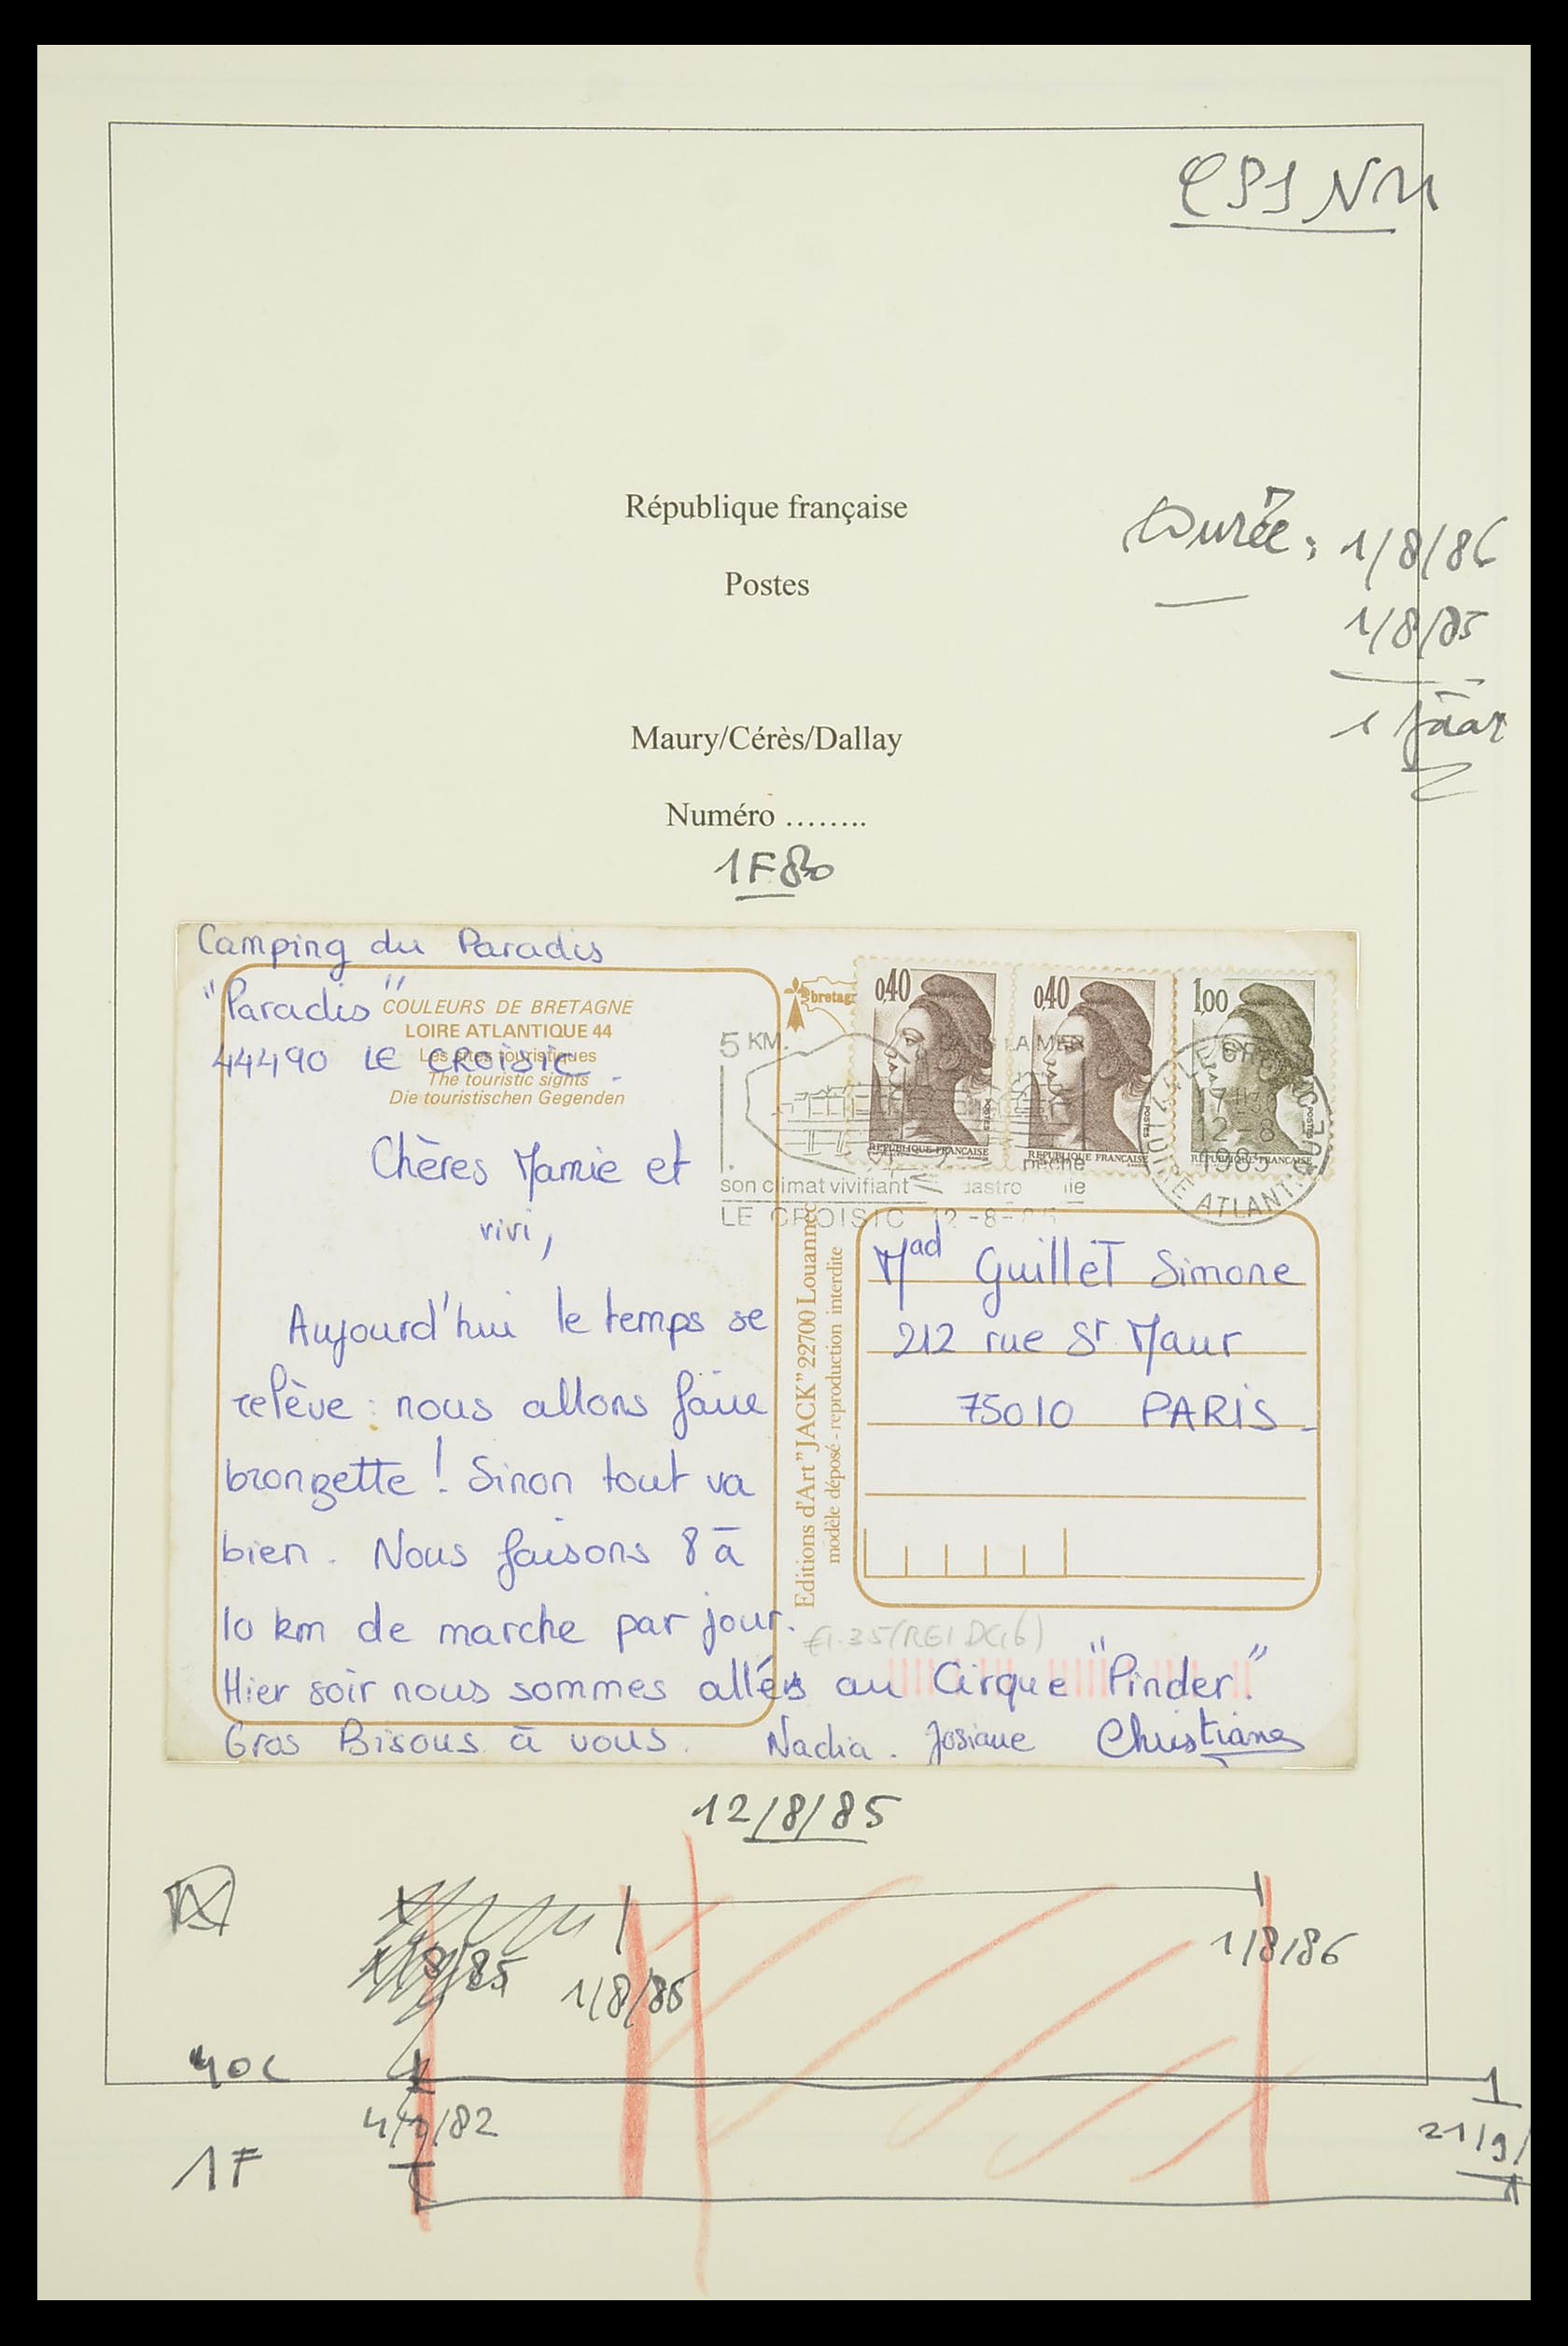 CPS NM
République française
Postes
Durée : 1/8/86
1/8/85
1 Jaar
Maury/Cérès/Dallay
Numéro ........
1F80
Camping du Paradis
"Paradis"
44490 LE CROISIC.
COULEURS DE BRETAGNE
LOIRE ATLANTIQUE 44
Les sites touristiques
The touristic sights
Die touristischen Gegenden
bretag
0,40
0,40
1,00
POSTES
POSTES
POSTES
REPUBLIQUE FRANÇAISE
REPUBLIQUE FRANÇAISE
REPUBLIQUE FRANÇAISE
5 KM.
LA MER
pêche
son climat vivifiant
LE CROISIC 12-8-
17H
12-8
1985
LOIRE ATLANTIQUE
Chères Mamie et
vivi,
Aujourd'hui le temps se
relève : nous allons faire
bronzette ! Sinon tout va
bien. Nous faisons 8 à
10 km de marche par jour.
Hier soir nous sommes allés au Cirque "Pinder."
Gros Bisous à vous. Nadia. Josiane Christiane
Editions d'Art "JACK" 22700 Louannec
modèle déposé - reproduction interdite
Mad Guillet Simone
212 rue St Maur
75010 PARIS
12/8/85
1/8/85
1/8/85
1/8/86
40c
4/1/82
21/9/
1F